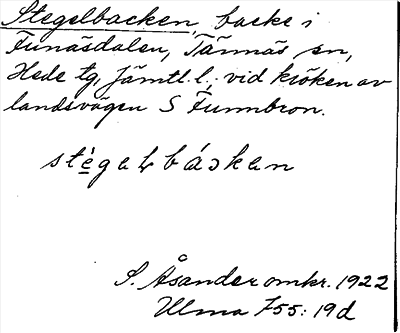 Stegelbacken, backe i
Funäsdalen, Tännäs sn,
Hede tg, Jämtl. l., vid kröken av
landsvägen S Funnbron.
S. Åsander omkr. 1922
Ulma 755: 19d